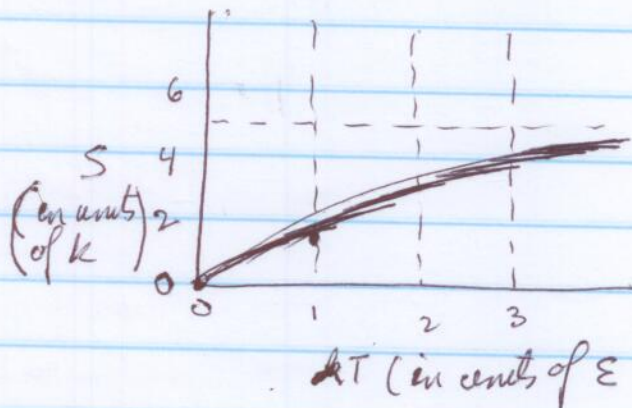 6
S
4
(in units
2
of k)
0
0 1 2 3
kT (in units of ε